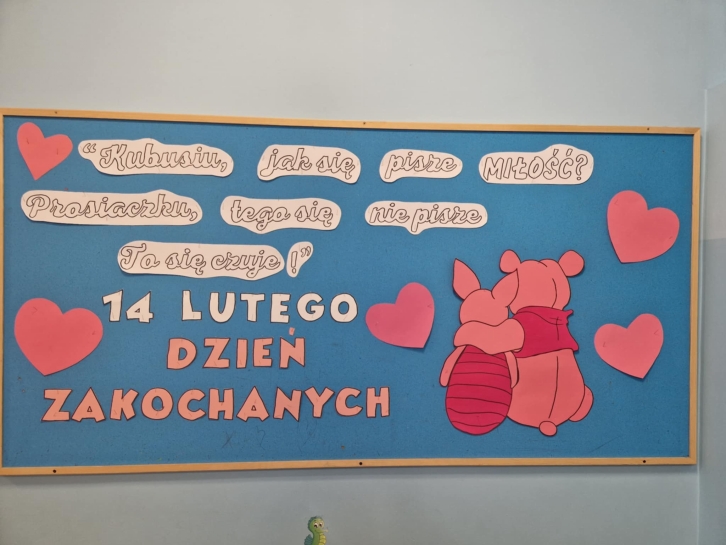 “Kubusiu, jak się pisze MIŁOŚĆ?
Prosiaczku, tego się nie pisze
To się czuje!”
14 LUTEGO
DZIEŃ
ZAKOCHANYCH